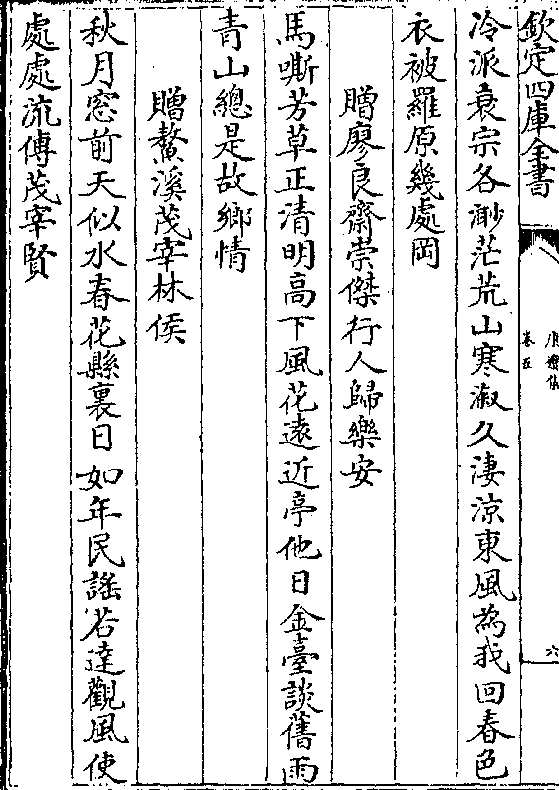 欽定四庫全書
卷五
六
冷派衰宗各渺茫荒山寒溆久淒涼東風為我回春色
衣被羅原幾處岡
贈廖良齋崇傑行人歸樂安
馬嘶芳草正清明高下風花遠近亭他日金臺談舊雨
青山總是故鄉情
贈鰲溪茂宰林侯
秋月窓前天似水春花縣裏日如年民謠若達觀風使
處處流傳茂宰賢